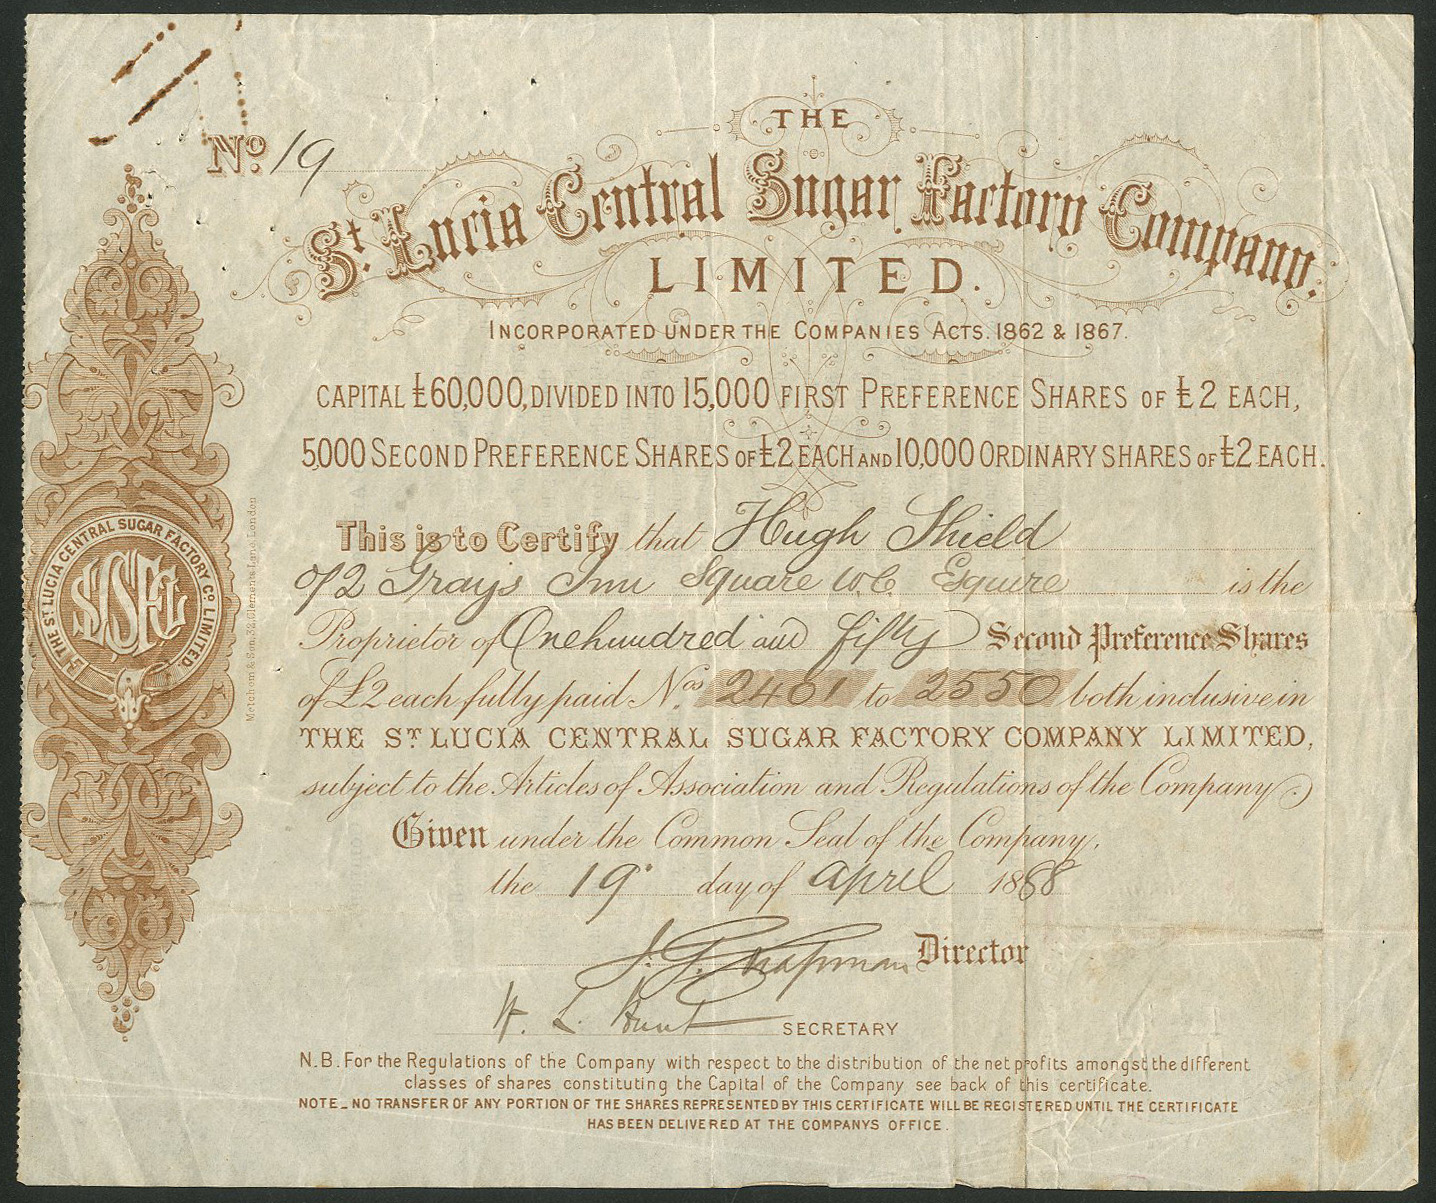 No. 19
THE
St. Lucia Central Sugar Factory Company.
LIMITED.
INCORPORATED UNDER THE COMPANIES ACTS. 1862 & 1867.
CAPITAL £60,000, DIVIDED INTO 15,000 FIRST PREFERENCE SHARES OF £2 EACH,
5,000 SECOND PREFERENCE SHARES OF £2 EACH AND 10,000 ORDINARY SHARES OF £2 EACH.
This is to Certify that Hugh Shield
of 2 Grays Inn Square W.C. Esquire is the
Proprietor of One hundred and fifty Second Preference Shares
of £2 each fully paid Nos. 2401 to 2550 both inclusive in
THE ST. LUCIA CENTRAL SUGAR FACTORY COMPANY LIMITED,
subject to the Articles of Association and Regulations of the Company.
Given under the Common Seal of the Company,
the 19 day of April 1888
J. G. Chapman Director
H. L. Hunt SECRETARY
N.B. For the Regulations of the Company with respect to the distribution of the net profits amongst the different
classes of shares constituting the Capital of the Company see back of this certificate.
NOTE_ NO TRANSFER OF ANY PORTION OF THE SHARES REPRESENTED BY THIS CERTIFICATE WILL BE REGISTERED UNTIL THE CERTIFICATE
HAS BEEN DELIVERED AT THE COMPANYS OFFICE.
THE ST LUCIA CENTRAL SUGAR FACTORY CO. LIMITED.
Metchem & Son, 32, Clements Lane, London